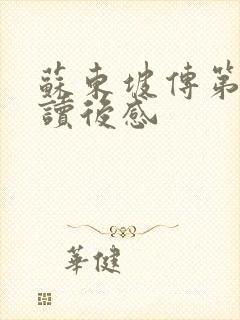 蘇東坡傳第
讀後感
華健